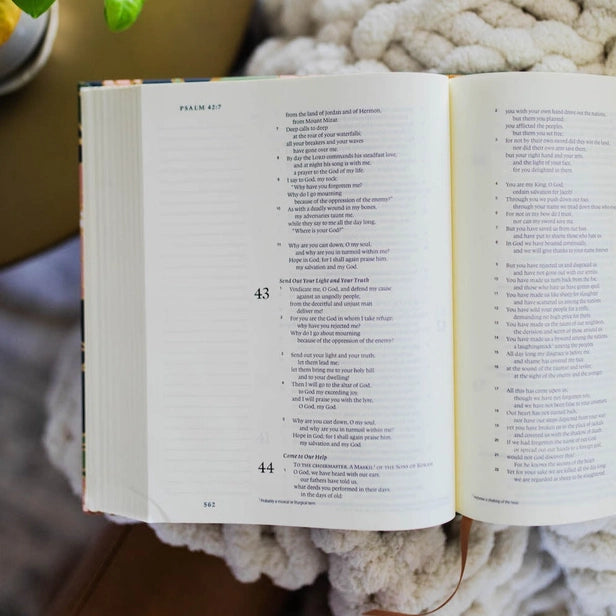 PSALM 42:7
from the land of Jordan and of Hermon,
from Mount Mizar.
7 Deep calls to deep
at the roar of your waterfalls;
all your breakers and your waves
have gone over me.
8 By day the LORD commands his steadfast love,
and at night his song is with me,
a prayer to the God of my life.
9 I say to God, my rock:
"Why have you forgotten me?
Why do I go mourning
because of the oppression of the enemy?"
10 As with a deadly wound in my bones,
my adversaries taunt me,
while they say to me all the day long,
"Where is your God?"
11 Why are you cast down, O my soul,
and why are you in turmoil within me?
Hope in God; for I shall again praise him,
my salvation and my God.
Send Out Your Light and Your Truth
43 1 Vindicate me, O God, and defend my cause
against an ungodly people,
from the deceitful and unjust man
deliver me!
2 For you are the God in whom I take refuge;
why have you rejected me?
Why do I go about mourning
because of the oppression of the enemy?
3 Send out your light and your truth;
let them lead me;
let them bring me to your holy hill
and to your dwelling!
4 Then I will go to the altar of God,
to God my exceeding joy,
and I will praise you with the lyre,
O God, my God.
5 Why are you cast down, O my soul,
and why are you in turmoil within me?
Hope in God; for I shall again praise him,
my salvation and my God.
Come to Our Help
44 TO THE CHOIRMASTER. A MASKIL¹ OF THE SONS OF KORAH.
1 O God, we have heard with our ears,
our fathers have told us,
what deeds you performed in their days,
in the days of old:
562
¹ Probably a musical or liturgical term
2 you with your own hand drove out the nations,
but them you planted;
you afflicted the peoples,
but them you set free;
3 for not by their own sword did they win the land,
nor did their own arm save them,
but your right hand and your arm,
and the light of your face,
for you delighted in them.
4 You are my King, O God;
ordain salvation for Jacob!
5 Through you we push down our foes;
through your name we tread down those who
6 For not in my bow do I trust,
nor can my sword save me.
7 But you have saved us from our foes
and have put to shame those who hate us.
8 In God we have boasted continually,
and we will give thanks to your name forever.
9 But you have rejected us and disgraced us
and have not gone out with our armies.
10 You have made us turn back from the foe,
and those who hate us have gotten spoil.
11 You have made us like sheep for slaughter
and have scattered us among the nations.
12 You have sold your people for a trifle,
demanding no high price for them.
13 You have made us the taunt of our neighbors,
the derision and scorn of those around us.
14 You have made us a byword among the nations,
a laughingstock¹ among the peoples.
15 All day long my disgrace is before me,
and shame has covered my face
16 at the sound of the taunter and reviler,
at the sight of the enemy and the avenger.
17 All this has come upon us,
though we have not forgotten you,
and we have not been false to your covenant.
18 Our heart has not turned back,
nor have our steps departed from your way;
19 yet you have broken us in the place of jackals
and covered us with the shadow of death.
20 If we had forgotten the name of our God
or spread out our hands to a foreign god,
21 would not God discover this?
For he knows the secrets of the heart.
22 Yet for your sake we are killed all the day long;
we are regarded as sheep to be slaughtered.
¹ Hebrew a shaking of the head